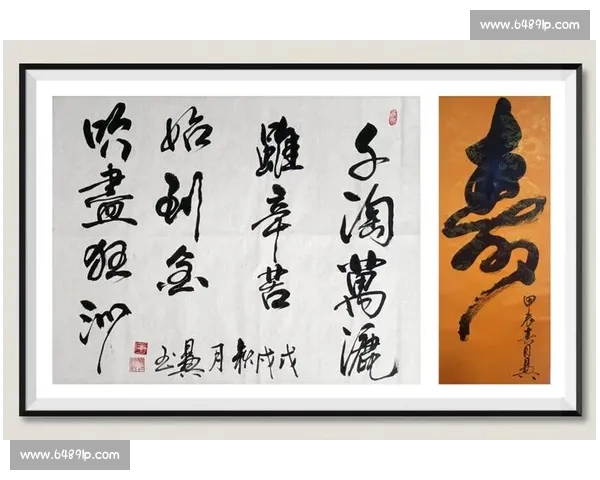 www.6489lp.com
千淘萬漉
雖辛苦
始到金
吹盡狂沙
戊戌秋月
壽
甲辰春月
www.6489lp.com